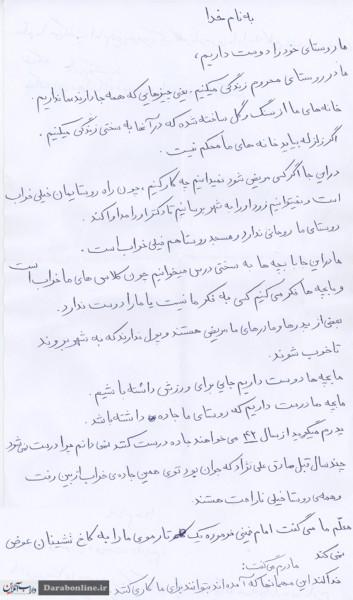 به نام خدا
ما روستای خود را دوست داریم،
ما در روستای محروم زندگی میکنیم. یعنی چیزهایی که همه جا دارند ما نداریم.
خانه های ما از سنگ و گل ساخته شده که در آنها به سختی زندگی میکنیم.
اگر زلزله بیاید خانه های ما محکم نیست.
در این جا اگر کسی مریض شود نمیدانیم چه کار کنیم، چون راه روستایمان خیلی خراب
است و نمیتوانیم زود او را به شهر برسانیم تا دکتر او را مداوا کند.
روستای ما روحانی ندارد و مسجد روستا هم خیلی خراب است.
ما در این جا با بچه ها به سختی درس میخوانیم چون کلاس های ما خراب است
و با بچه ها فکر می کنیم کسی به فکر ما نیست یا ما را دوست ندارد.
بعضی از پدرها و مادرهای ما مریض هستند و پول ندارند که به شهر بروند
تا خوب شوند.
ما بچه ها دوست داریم جای برای ورزش داشته باشیم.
ما بچه ها دوست داریم که روستای ما جاده داشته باشد.
پدرم میگوید از سال ۴۲ می خواهند جاده درست کنند نمی دانم چرا درست نمی شود
چند سال قبل صادق علی نژاد که جوان بود توی همین جاده ی خراب از بین رفت
و همه ی روستا خیلی ناراحت هستند.
معلم ما می گفت امام خمینی فرموده یک تار موی ما را به کاخ نشینان عوض
نمی کند
مادرم می گفت:
خدا کند این مهمانها که آمده اند بتوانند برای ما کاری کنند
داراب آنلاین
Darabonline.ir